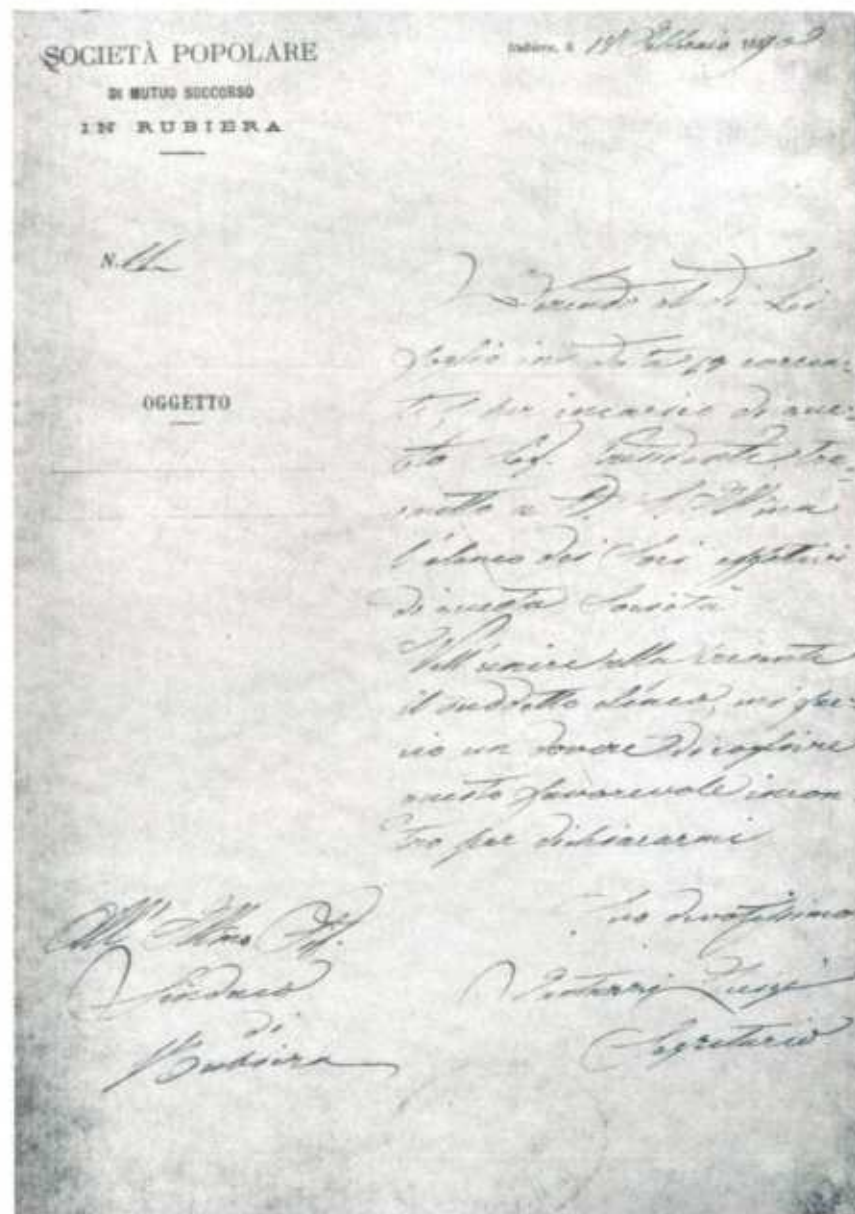 SOCIETÀ POPOLARE
DI MUTUO SOCCORSO
IN RUBIERA
Rubiera, li 19 Febbraio 18
N.
OGGETTO
di Lei
foglio in data 19 corren-
te, per incarico di que-
sto Sig. Presidente tra-
smetto a V. S. Ill.ma
l'elenco dei Soci effettivi
di questa Società
Nell'unire alla presente
il suddetto elenco, mi fac-
cio un dovere di cogliere
questo favorevole incon
tro per dichiararmi
Suo devotissimo
Luigi
Segretario
All' Ill.mo Sig.
Sindaco
di
Rubiera